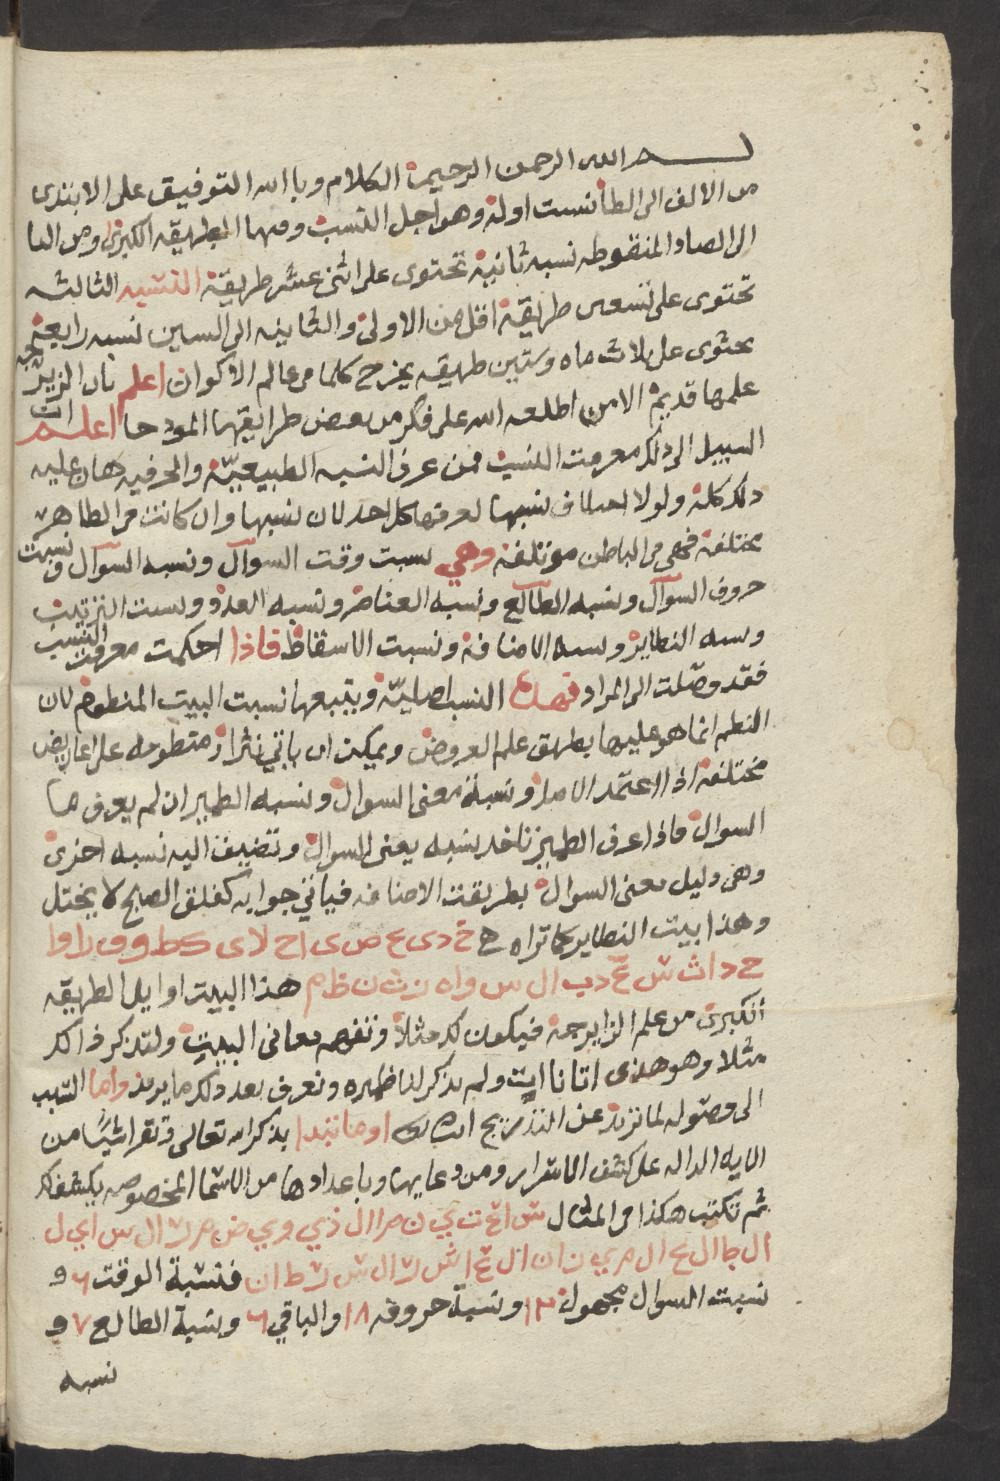 بسم الله الرحمن الرحيم الكلام وبالله التوفيق على الابتدى
من الالف الى الطا نسبت اوله وهو اجل النسب ومنها الطريقه الكبرى ومن الىا
الى الصاد المنقوطه نسبه ثانية تحتوى على اثنى عشر طريقة النسبه الثالثه
تحتوى على تسعىں طريقة اقل من الاولى والثانيه الى السين نسبه رابعة
ىحتوى على ثلاث ماه وستين طريقه يخرج كلما من عالم الاكوان اعلم بان الزيرجه
علمها قديم الا من اطلعه الله على فكر من ىعض طرايقها اعلم ان
السبيل الى ذلك معرفت النسب فمن عرف النسبه الطبيعيّة والحرفيه هان عليه
ذلك كله ولولا اختلاف نسبها لعرفها كل احد لان نسبها وان كانت في الظاهر
مختلفة فهى فى الباطن موتلفة وهي نسبت وقت السوآل ونسبه السوآل ونسبت
حروف السوآل ونسبه الطآلع ونسبه العناصر ونسبه العدد ونسبت الترتيب
ونسبه النظاير ونسبه الاضافة ونسبت الاسقاط فاذا احكمت معرفت النسب
فقد وصّلت الى المراد فهذه النسب اصليّة ويتبعها نسبت البيت المنظوم لان
النظم انما هو عليها بطريق علم العروض ويمكن ان ياتي نثرا او منظومه على اعاريض
مختلفة اذا اعتمد الاصل ونسبة معنى السوال ونسبه الضمير ان لم يعرف ما
السوال فاذا عرف الضمير تاخد نسبه يعنى السوال وتضيف اليه نسبه اخرى
وهى دليل معنى السوال بطريقت الاضافه فياتي جوابه كفلق الصبح لا يختل
وهذا بيت النظاير كما تراه ح خ دى ع ص ى اح لاى كط وو ف را وا
ح د اث ش غ دب ال س واه ن ث ن ظ م هذا البيت اوايل الطريقه
الكبرى من علم الزايرجة فيكون كد مثلا وتفهم معانى البيت ولتدكر ذالك
مثلا وهو هذى اتانا ايت ولم يذكر لنا ضميره ونعرف بعد ذلك ما يريد واما السبب
الى وصوله لما نريد عن التدريج اول ما نبدا بذكر الله تعالى وتقرا شيًا من
الايه الداله على كشف الاسرار ومن دعايها وباعدادها من الاسما المخصوصه يكشف لك
ثم تكتب هكذا فى المثال س اع ت ي ن م راال ذي وي ض م ر ال س اي ل
ال ج ال ع ال م ري ن ان ال ع اش ر ال ش ر ط ان فنسبة الوقت ٦ و
نسبت السوال مجهول ١٣ ونسبة حروفه ١٨ والباقي ٦ ونسبة الطالع ٧ و
نسبه